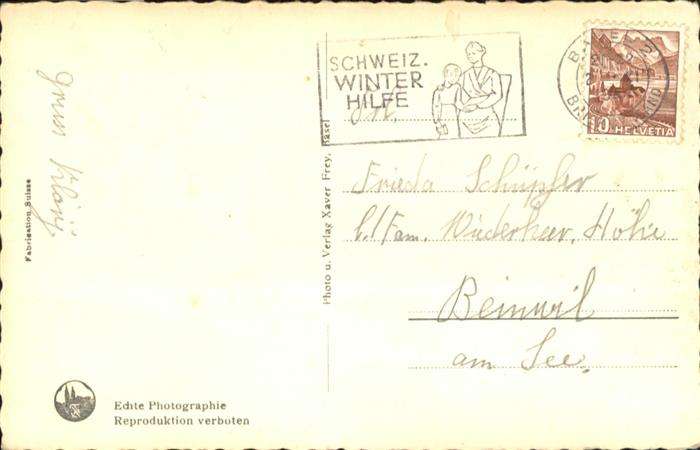 Fabrication Suisse
Echte Photographie
Reproduktion verboten
Photo u. Verlag Xaver Frey, Basel
SCHWEIZ.
WINTER
HILFE
BASEL 2
10 HELVETIA
Frl.
Frieda Schüpfer
b./Fam. Wiederkeer, Höhe
Beinwil
am See.